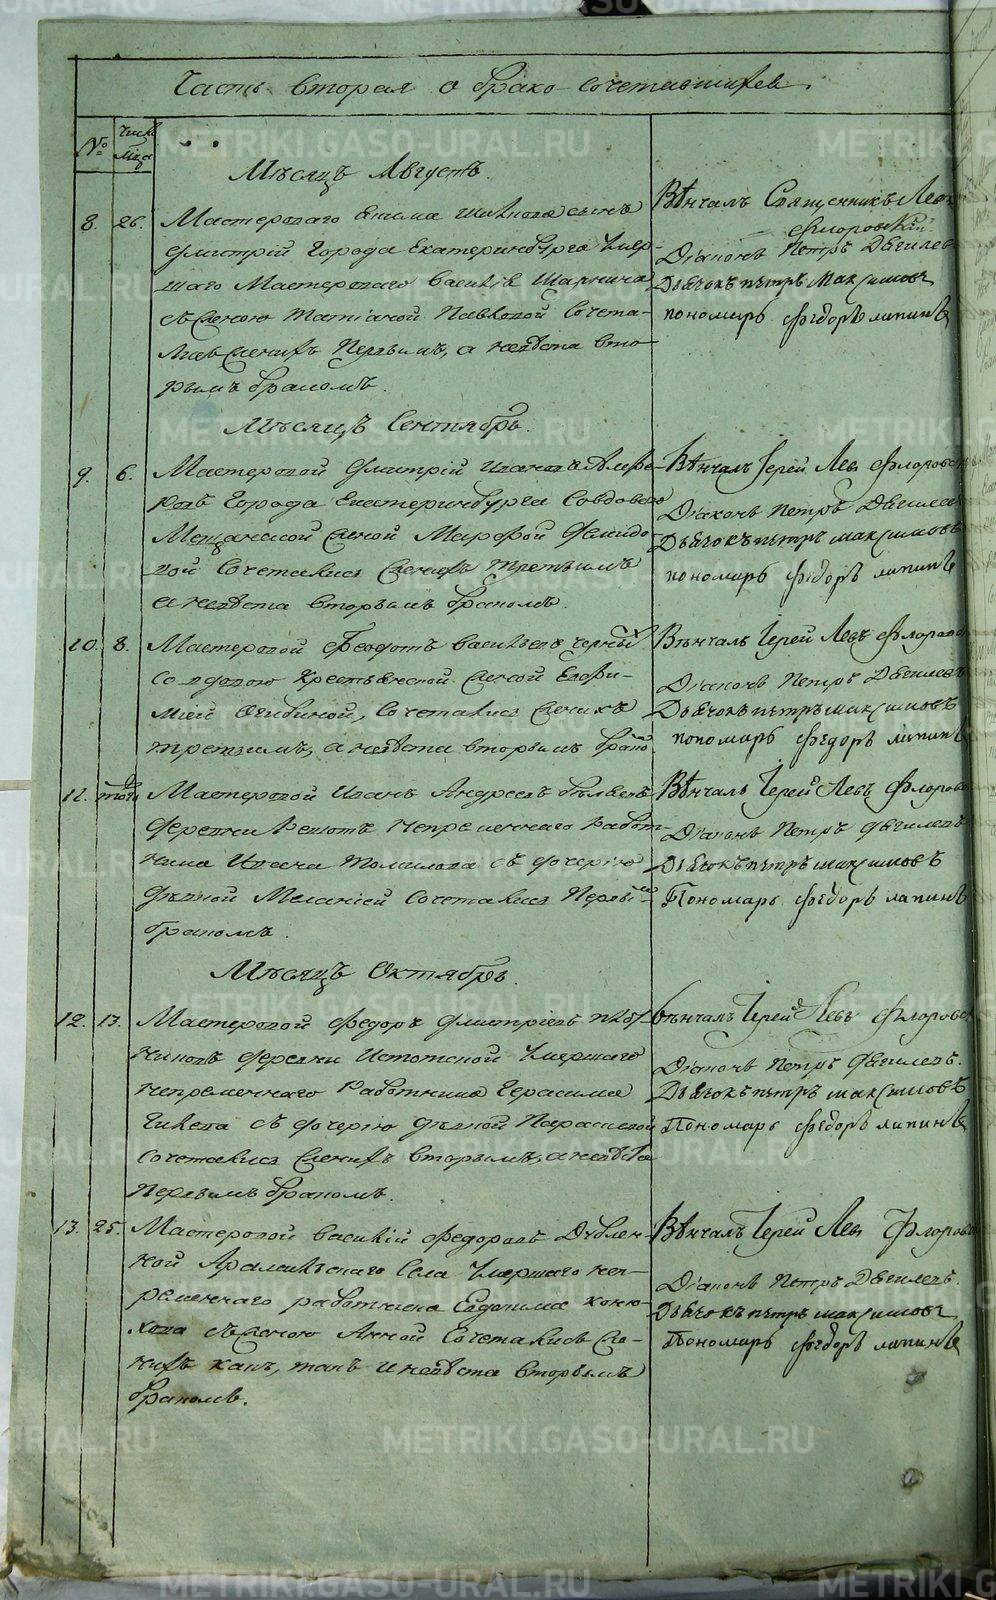 Часть вторая о брако-сочетавшихся.
№ Числ. мѣца
Мѣсяцъ Августъ.
8. 26. Мастероваго Екима сынъ
Дмитрій Города Екатеринбурга Умер-
шаго Мастероваго Василія
съ женою Татіаной Павловой Сочета-
лись женихъ Первымъ, а невѣста вто-
рымъ бракомъ.
Вѣнчалъ Священникъ Левъ
Флоровскій
Діаконъ Петръ
Дьячокъ петръ максимовъ
пономарь федоръ лапинъ
Мѣсяцъ Сентябрь.
9. 6. Мастеровой Дмитрій Ивановъ
Города Екатеринбурга Совдовою
Мещанской женой Марфой
вой Сочетались женихъ третьимъ
а невѣста вторымъ бракомъ.
Вѣнчалъ Іерей Левъ Флоровск
Діаконъ Петръ
Дьячокъ петръ максимовъ
пономарь федоръ лапинъ
10. 8. Мастеровой Феодотъ Васильевъ Черныхъ
Со вдовою Крестьянской женой Евфи-
міей, Сочетались женихъ
третьимъ, а невѣста вторымъ брако
Вѣнчалъ Іерей Левъ Флоровск
Діаконъ Петръ
Дьячокъ петръ максимовъ
пономарь федоръ лапинъ
11. того Мастеровой Иванъ Андреевъ Бѣляевъ
деревни Решотъ Непременнаго Работ-
ника съ дочерію
дѣвкой Меланіей Сочетались Первымъ
бракомъ.
Вѣнчалъ Іерей Левъ Флоровск
Діаконъ Петръ
Дьячокъ петръ максимовъ
Пономарь федоръ лапинъ
Мѣсяцъ Октябрь.
12. 13. Мастеровой Федоръ Дмитріевъ
деревни Истокской Умершаго
непременнаго Работника Герасима
съ дочерію дѣвкой Параскевой
Сочетались женихъ вторымъ, а невѣста
Первымъ бракомъ.
Вѣнчалъ Іерей Левъ Флоровск
Діаконъ Петръ
Дьячокъ петръ максимовъ
Пономарь федоръ лапинъ
13. 25. Мастеровой Василій Федоровъ
Арамильскаго Села Умершаго неп-
ременнаго работника Евдокима коню-
хова съ женою Анной Сочетались же-
нихъ какъ, такъ и невѣста вторымъ
бракомъ.
Вѣнчалъ Іерей Левъ Флоровск
Діаконъ Петръ
Дьячокъ петръ максимовъ
Пономарь федоръ лапинъ
METRIKI.GASO-URAL.RU